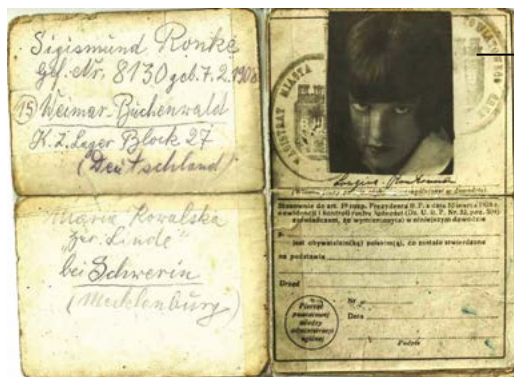 Sigismund Ronke
Gef. Nr. 8130 geb. 7. 2. 1908
15 Weimar-Buchenwald
K. Z. Lager Block 27
(Deutschland)
Maria Kowalska
"zur Linde"
bei Schwerin
(Mecklenburg)
MAGISTRAT MIASTA
Stosownie do art. rozp. Prezydenta R. P. z dnia 16 marca 1928 r.
o ewidencji i kontroli ruchu ludności (Dz. U. R. P. Nr. 32, poz. 309)
poświadczam, że wymieniony(a) w niniejszym dowodzie
p.
jest obywatelem(ką) polskim(ą), co zostało stwierdzone
na podstawie
Urząd
Nr
Data
Pieczęć
powiatowej
władzy
administracji
ogólnej
Podpis